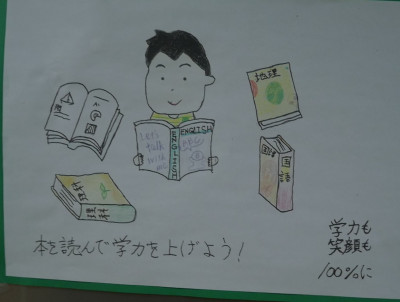 地理
ENGLISH
ENGLISH
Let's
talk
with
国語
理科
本を読んで学力を上げよう!
学力も
笑顔も
100%に